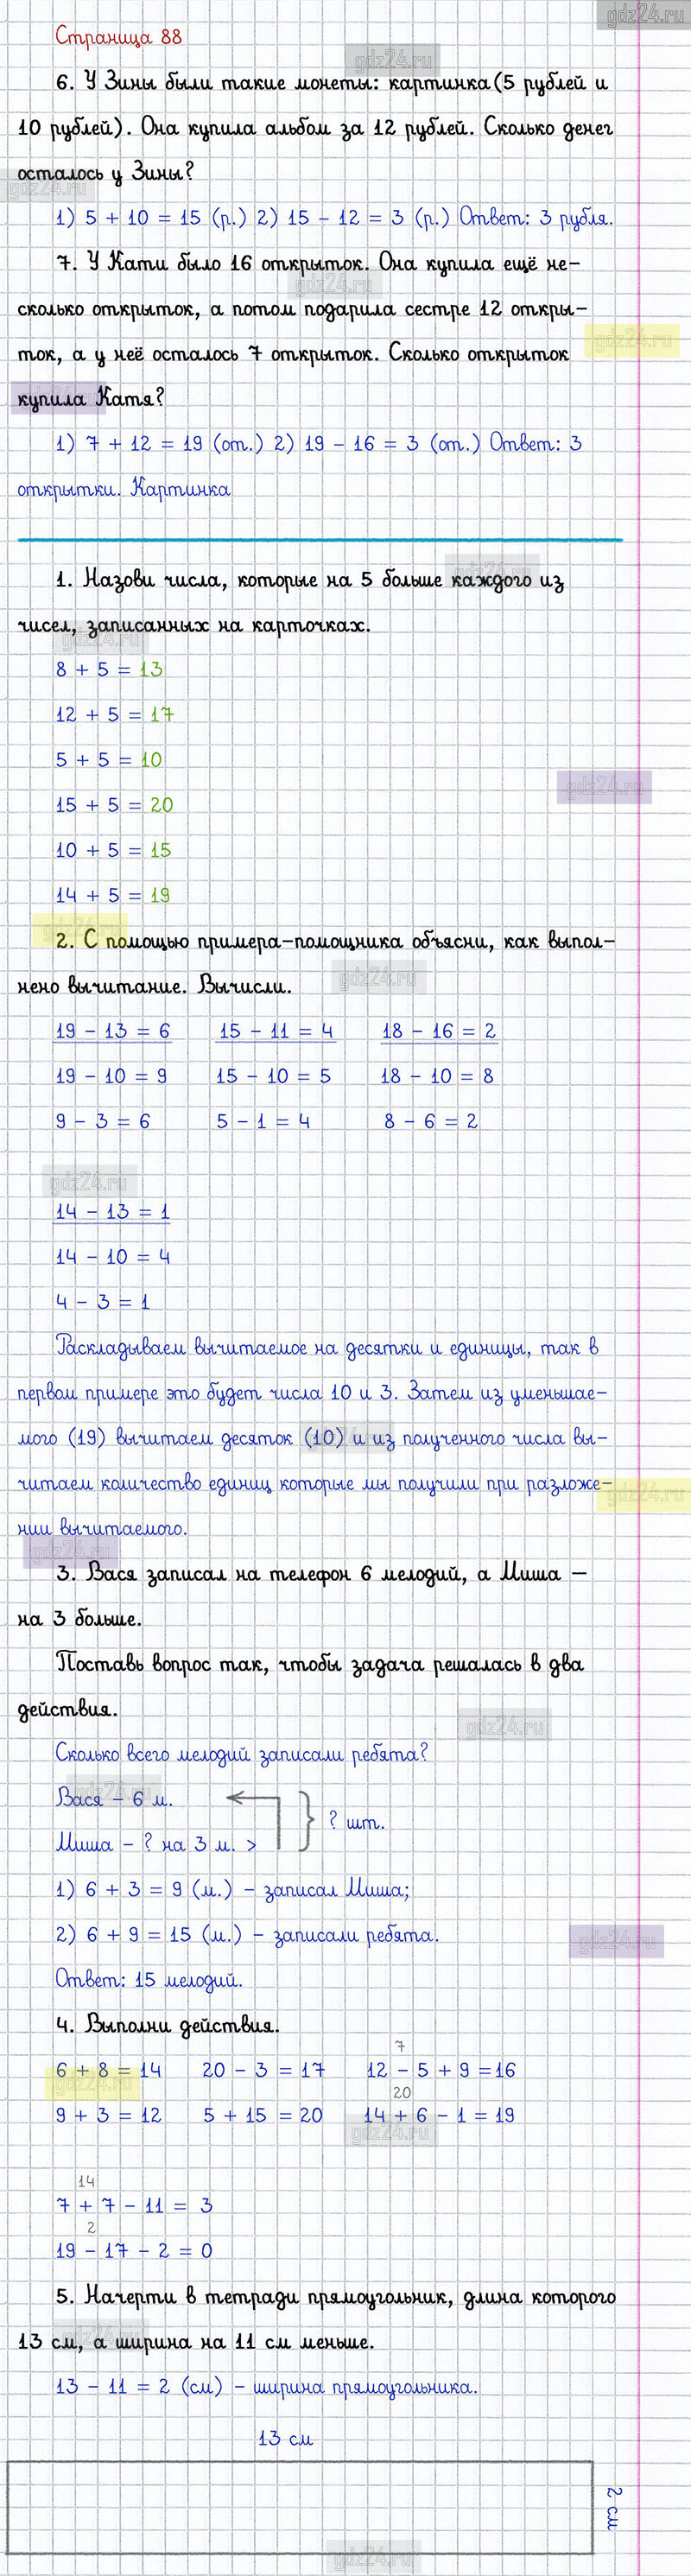 gdz24.ru
Страница 88
gdz24.ru
6. У Зины были такие монеты: картинка(5 рублей и
10 рублей). Она купила альбом за 12 рублей. Сколько денег
осталось у Зины?
gdz24.ru
1) 5 + 10 = 15 (р.) 2) 15 - 12 = 3 (р.) Ответ: 3 рубля.
7. У Кати было 16 открыток. Она купила ещё не-
gdz24.ru
сколько открыток, а потом подарила сестре 12 откры-
gdz24.ru
ток, а у неё осталось 7 открыток. Сколько открыток
купила Катя?
1) 7 + 12 = 19 (от.) 2) 19 - 16 = 3 (от.) Ответ: 3
открытки. Картинка
gdz24.ru
1. Назови числа, которые на 5 больше каждого из
чисел, записанных на карточках.
gdz24.ru
8 + 5 = 13
12 + 5 = 17
5 + 5 = 10
gdz24.ru
15 + 5 = 20
10 + 5 = 15
14 + 5 = 19
gdz24.ru
2. С помощью примера-помощника объясни, как выпол-
gdz24.ru
нено вычитание. Вычисли.
19 - 13 = 6 15 - 11 = 4 18 - 16 = 2
19 - 10 = 9 15 - 10 = 5 18 - 10 = 8
9 - 3 = 6 5 - 1 = 4 8 - 6 = 2
gdz24.ru
14 - 13 = 1
14 - 10 = 4
4 - 3 = 1
Раскладываем вычитаемое на десятки и единицы, так в
первом примере это будет числа 10 и 3. Затем из уменьшае-
мого (19) вычитаем десяток (10) и из полученного числа вы-
читаем количество единиц которые мы получили при разложе-
gdz24.ru
нии вычитаемого.
gdz24.ru
3. Вася записал на телефон 6 мелодий, а Миша -
на 3 больше.
Поставь вопрос так, чтобы задача решалась в два
действия.
gdz24.ru
Сколько всего мелодий записали ребята?
gdz24.ru
Вася - 6 м.
? шт.
Миша - ? на 3 м. >
1) 6 + 3 = 9 (м.) - записал Миша;
2) 6 + 9 = 15 (м.) - записали ребята.
gdz24.ru
Ответ: 15 мелодий.
4. Выполни действия.
7
6 + 8 = 14 20 - 3 = 17 12 - 5 + 9 =16
gdz24.ru
20
9 + 3 = 12 5 + 15 = 20 14 + 6 - 1 = 19
gdz24.ru
14
7 + 7 - 11 = 3
2
19 - 17 - 2 = 0
5. Начерти в тетради прямоугольник, длина которого
gdz24.ru
13 см, а ширина на 11 см меньше.
13 - 11 = 2 (см) - ширина прямоугольника.
13 см
2 см
gdz24.ru